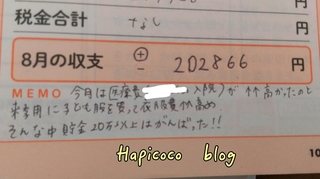 円
税金合計 なし 円
8月の収支 ⊕ 202866 円
MEMO 今月は医療費( 入院)が高かったのと
来季用に子ども服を買って衣服費高め
そんな中貯金20万以上はがんばった!!
Hapicoco blog
10